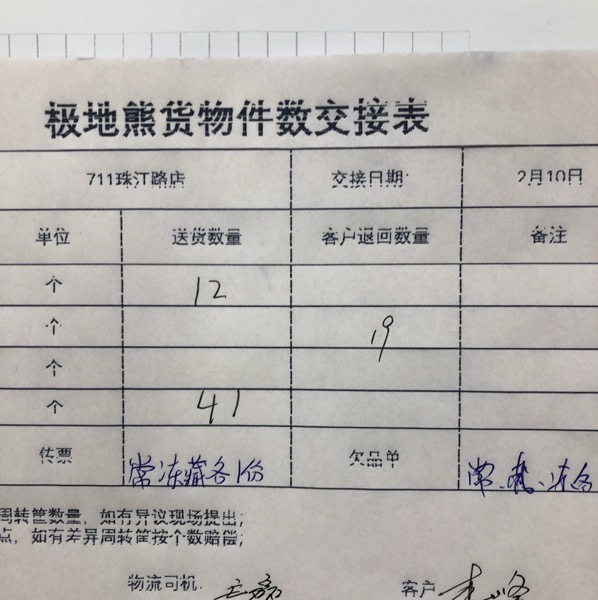 极地熊货物件数交接表
711珠江路店 交接日期: 2月10日
单位 送货数量 客户退回数量 备注
个 12
个 19
个
个 41
传票 常冻藏各1份 欠品单 常、
周转筐数量，如有异议现场提出；
点，如有差异周转筐按个数赔偿；
物流司机: 客户